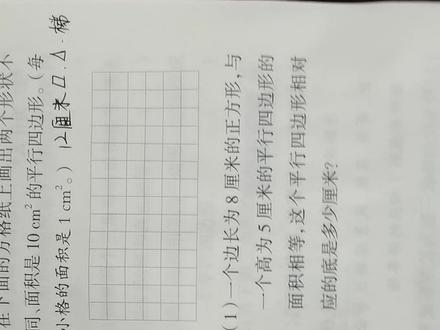 在下面的方格纸上画出两个形状不
同、面积是 10 cm² 的平行四边形。(每
小格的面积是 1 cm²。) 12厘米 □·△·梯
(1)一个边长为 8 厘米的正方形,与
一个高为 5 厘米的平行四边形的
面积相等,这个平行四边形相对
应的底是多少厘米?